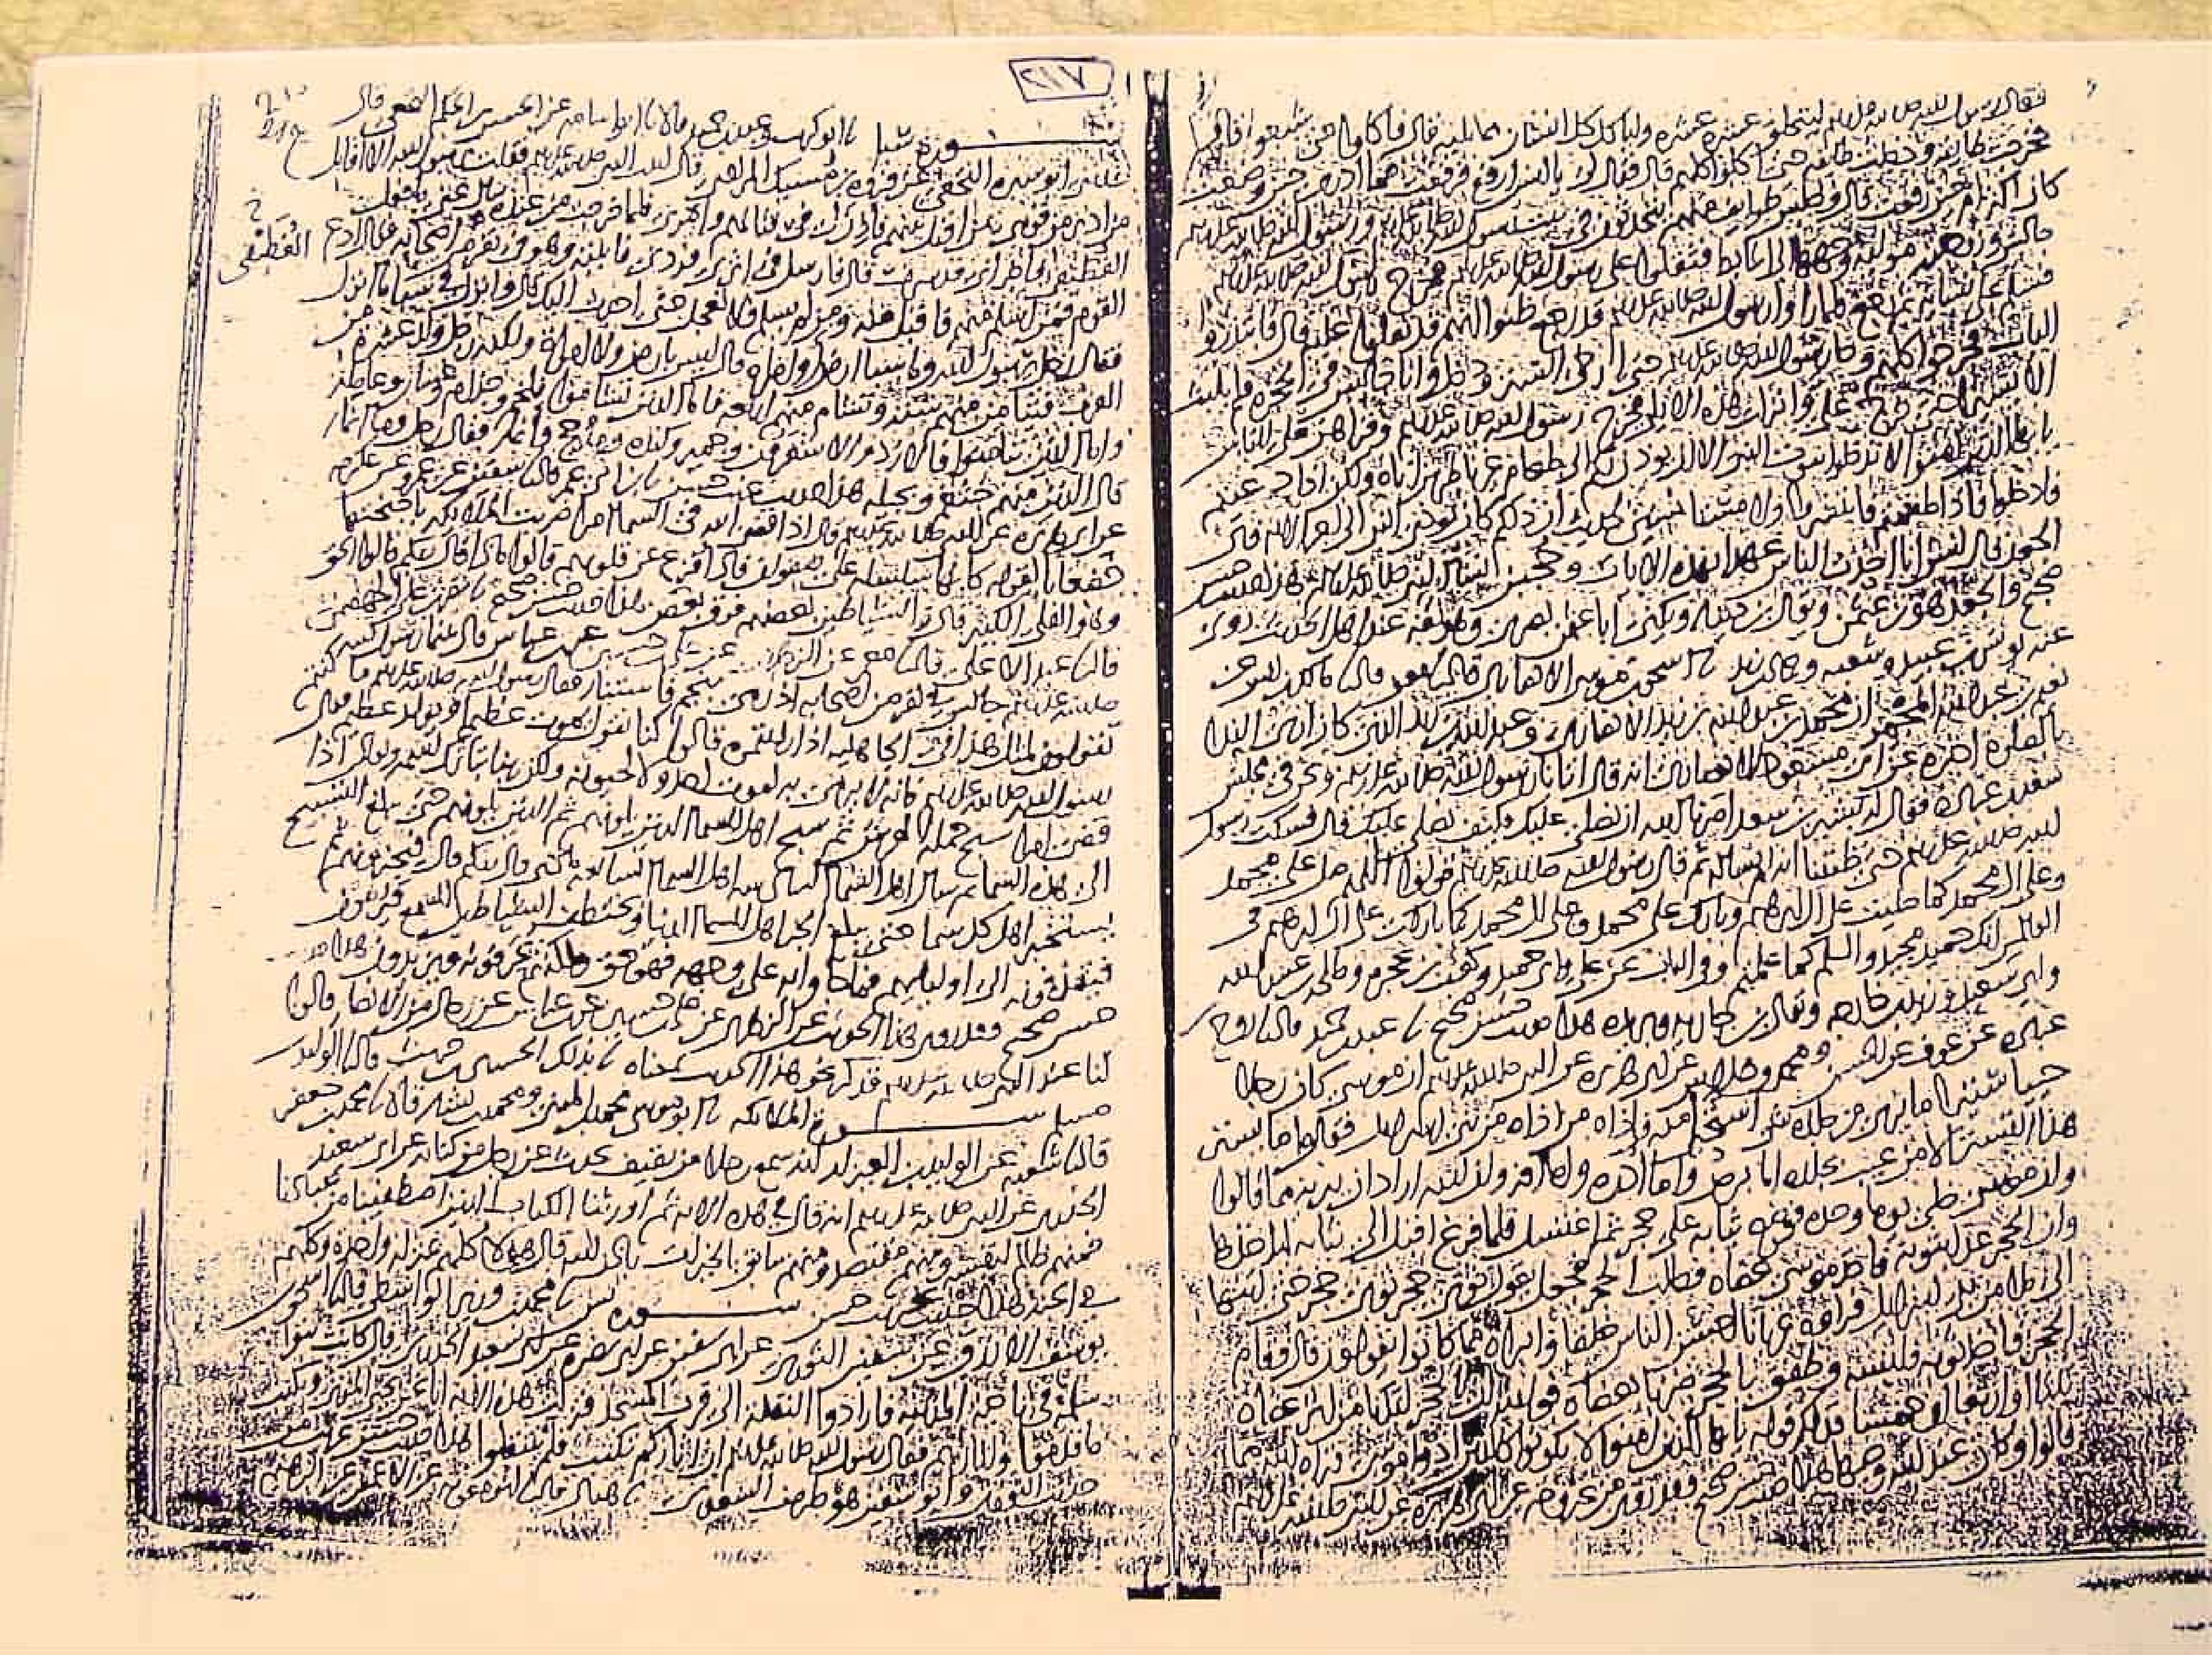 فقال رسول الله صلى الله عليه وسلم ليتحلق عشرة عشرة ولياكل كل انسان مما يليه قال فاكلوا حتى شبعوا قال
فخرجت طايفة ودخلت طايفة حتى اكلوا كلهم قال فقال لي يا انس ارفع فرفعت فما ادري حين وضعت
كان اكثر ام حين رفعت قال وجلس طوايف منهم يتحدثون في بيت رسول الله صلى الله عليه ورسول الله صلى الله عليه
جالس وزوجته مولية وجهها الى الحايط فثقلوا على رسول الله صلى الله عليه وسلم فخرج رسول الله صلى الله عليه وسلم
فسلم على نسايه ثم رجع فلما راوا رسول الله صلى الله عليه وسلم قد رجع ظنوا انهم قد ثقلوا عليه قال فابتدروا
الباب فخرجوا كلهم وجا رسول الله صلى الله عليه وسلم حتى ارخى الستر ودخل وانا جالس في الحجرة فلم يلبث
الا يسيرا حتى خرج علي وانزلت هذه الاية فخرج رسول الله صلى الله عليه وسلم وقراهن على الناس
يا ايها الذين امنوا لا تدخلوا بيوت النبي الا ان يوذن لكم الى طعام غير ناظرين اناه ولكن اذا دعيتم
فادخلوا فاذا طعمتم فانتشروا ولا مستانسين لحديث ان ذلكم كان يوذي النبي الى اخر الاية قال
الجعد قال انس انا احدث الناس عهدا بهذه الايات وحجبن نساء النبي صلى الله عليه وسلم هذا حديث حسن
صحيح والجعد هو ابن عثمن ويقال ابن دينار ويكنى ابا عثمن بصري وهو ثقة عند اهل الحديث روى
عنه يونس بن عبيد وشعبة وحماد بن زيد نا اسحق بن موسى الانصاري قال نا معن قال نا ملك بن انس عن
نعيم بن عبد الله المجمر ان محمد بن عبد الله بن زيد الانصاري وعبد الله بن زيد الذي كان اري الندا
بالصلاة اخبره عن ابي مسعود الانصاري انه قال اتانا رسول الله صلى الله عليه وسلم ونحن في مجلس
سعد بن عبادة فقال له بشير بن سعد امرنا الله ان نصلي عليك فكيف نصلي عليك قال فسكت رسول
الله صلى الله عليه وسلم حتى ظننا انه لم يساله ثم قال رسول الله صلى الله عليه وسلم قولوا اللهم صل على محمد
وعلى ال محمد كما صليت على ال ابرهيم وبارك على محمد وعلى ال محمد كما باركت على ال ابرهيم في
العالمين انك حميد مجيد والسلم كما علمتم وفي الباب عن علي وابي حميد وكعب بن عجرة وطلحة بن عبيد الله
وابي سعيد وزيد بن خارجة ويقال ابن جارية وبريدة هذا حديث حسن صحيح نا عبد بن حميد قال نا روح بن
عبادة عن عوف عن الحسن ومحمد وخلاس عن ابي هريرة عن النبي صلى الله عليه وسلم ان موسى كان رجلا
حييا ستيرا ما يرى من جلده شي استحيا منه فاذاه من اذاه من بني اسرايل فقالوا ما يستتر
هذا التستر الا من عيب بجلده اما برص واما ادرة واما افة وان الله اراد ان يبريه مما قالوا
وان موسى خلا يوما وحده فوضع ثيابه على حجر ثم اغتسل فلما فرغ اقبل الى ثيابه لياخذها
وان الحجر عدا بثوبه فاخذ موسى عصاه فطلب الحجر فجعل يقول ثوبي حجر ثوبي حجر حتى انتهى
الى ملا من بني اسرايل فراوه عريانا احسن الناس خلقا وابراه مما كانوا يقولون قال وقام
الحجر فاخذ ثوبه فلبسه وطفق بالحجر ضربا بعصاه فوالله ان بالحجر لندبا من اثر عصاه
ثلثا او اربعا او خمسا فذلك قوله يا ايها الذين امنوا لا تكونوا كالذين اذوا موسى فبراه الله مما
قالوا وكان عند الله وجيها هذا حديث حسن صحيح وقد روي من غير وجه عن ابي هريرة عن النبي صلى الله عليه وسلم
٢١٧
سورة سبا نا ابو كريب وعبد بن حميد قالا نا ابو اسامة عن الحسن بن الحكم النخعي قال
حدثني ابو سبرة النخعي عن فروة بن مسيك المرادي قال اتيت النبي صلى الله عليه وسلم فقلت يرسول الله الا اقاتل
من ادبر من قومي بمن اقبل منهم فاذن لي في قتالهم وامرني فلما خرجت من عنده سال عني ما فعل
الغطيفي فاخبر اني قد سرت قال فارسل في اثري فردني فاتيته وهو في نفر من اصحابه فقال ادع
الغطيفي
القوم فمن اسلم منهم فاقبل منه ومن لم يسلم فلا تعجل حتى احدث اليك قال وانزل في سبا ما انزل
فقال رجل يرسول الله وما سبا ارض او امراة قال ليس بارض ولا امراة ولكنه رجل ولد عشرة من
العرب فتيامن منهم ستة وتشام منهم اربعة فاما الذين تشاموا فلخم وجذام وغسان وعاملة
واما الذين تيامنوا فالازد والاشعرون وحمير وكندة ومذحج وانمار فقال رجل وما انمار
قال الذين منهم خثعم وبجيلة هذا حديث غريب حسن نا ابن ابي عمر قال نا سفين عن عمرو عن عكرمة
عن ابي هريرة عن النبي صلى الله عليه وسلم قال اذا قضى الله في السما امرا ضربت الملايكة باجنحتها
خضعانا لقوله كانها سلسلة على صفوان فاذا فزع عن قلوبهم قالوا ماذا قال ربكم قالوا الحق
وهو العلي الكبير قال والشياطين بعضهم فوق بعض هذا حديث حسن صحيح نا نصر بن علي الجهضمي
قال نا عبد الاعلى قال نا معمر عن الزهري عن علي بن حسين عن ابن عباس قال بينما رسول الله
صلى الله عليه وسلم جالس في نفر من اصحابه اذ رمي بنجم فاستنار فقال رسول الله صلى الله عليه وسلم ما كنتم
تقولون لمثل هذا في الجاهلية اذا رايتموه قالوا كنا نقول يموت عظيم او يولد عظيم فقال
رسول الله صلى الله عليه وسلم فانه لا يرمى به لموت احد ولا لحيوته ولكن ربنا تبارك اسمه وتعالى اذا
قضى امرا سبح حملة العرش ثم سبح اهل السما الذين يلونهم ثم الذين يلونهم حتى يبلغ التسبيح
الى هذه السما ثم سال اهل السما السادسة اهل السما السابعة ماذا قال ربكم قال فيخبرونهم ثم
يستخبر اهل كل سما حتى يبلغ الخبر اهل السما الدنيا وتختطف الشياطين السمع فيرمون
فيقذفونه الى اوليايهم فما جاوا به على وجهه فهو حق ولكنهم يحرفونه ويزيدون هذا حديث
حسن صحيح وقد روي هذا الحديث عن الزهري عن علي بن حسين عن ابن عباس عن رجال من الانصار قالوا
كنا عند النبي صلى الله عليه وسلم فذكر نحو هذا الحديث بمعناه نا بذلك الحسين بن حريث قال نا الوليد بن
مسلم سورة الملائكة نا ابو موسى محمد بن المثنى ومحمد بن بشار قالا نا محمد بن جعفر
قال نا شعبة عن الوليد بن العيزار انه سمع رجلا من ثقيف يحدث عن رجل من كنانة عن ابي سعيد
الخدري عن النبي صلى الله عليه وسلم انه قال في هذه الاية ثم اورثنا الكتاب الذين اصطفينا من عبادنا
فمنهم ظالم لنفسه ومنهم مقتصد ومنهم سابق بالخيرات باذن الله قال هولا كلهم بمنزلة واحدة وكلهم
في الجنة هذا حديث غريب حسن سورة يس نا محمد بن وزير الواسطي قال نا اسحق بن
يوسف الازرق عن سفين الثوري عن ابي سفين عن ابي نضرة عن ابي سعيد الخدري قال كانت بنوا
سلمة في ناحية المدينة فارادوا النقلة الى قرب المسجد فنزلت هذه الاية انا نحن نحيي الموتى ونكتب
ما قدموا واثارهم فقال رسول الله صلى الله عليه وسلم ان اثاركم تكتب فلم ينتقلوا هذا حديث حسن غريب من
حديث الثوري وابو سفين هو طريف السعدي نا هناد قال نا ابو معوية عن الاعمش عن ابرهيم